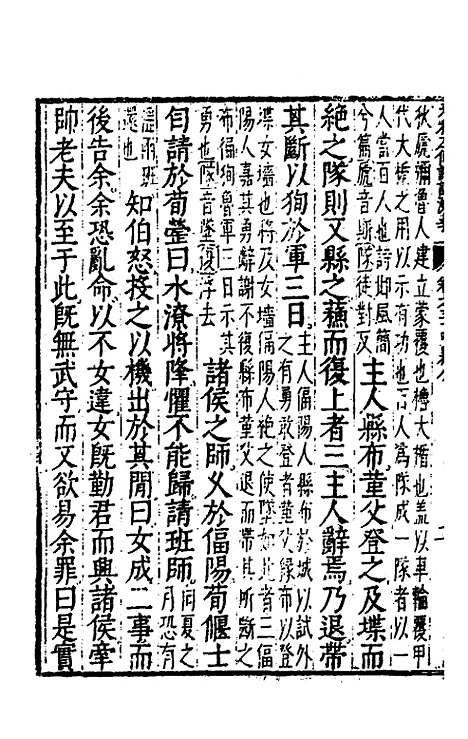 狄虒彌魯人建立蒙覆也櫓大楯也蓋以車輪覆甲
代大櫓之用以示有功也百人為隊成一隊者以一
人當百人也詩邶風簡
兮篇虒音斯隊徒對反
主人縣布堇父登之及堞而
絕之隊則又縣之蘇而復上者三主人辭焉乃退帶
其斷以狥於軍三日
主人偪陽人縣布於城以試外
之有勇敢登者堇父緣布以登
堞女墻也將及女墻偪陽人絕之使墜如此者三偪
陽人嘉其勇辭謝不復縣布堇父退而帶其所斷之
布徧狥魯軍三日示其
勇也隊音墜復浮去
諸侯之師乆於偪陽荀偃士
匄請於荀罃曰水潦將降懼不能歸請班師
向夏之
月恐有
淫雨班
還也
知伯怒投之以機出於其閒曰女成二事而
後告余余恐亂命以不女違女既勤君而興諸侯牽
帥老夫以至于此既無武守而又欲易余罪曰是實